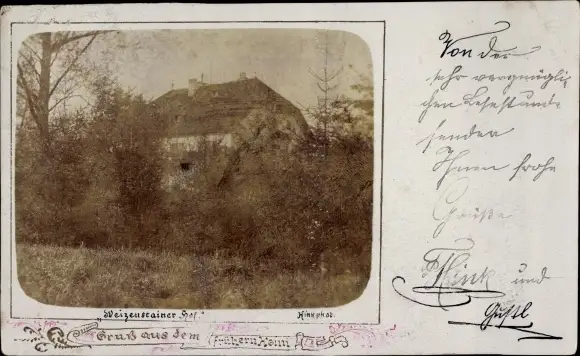 "Weizenstainer Hof."
Hink phot.
Gruß aus dem frühern Heim!
Von der
sehr vergnügli-
chen Lesestunde
senden
Ihnen frohe
Grüße
Hink und
Gustl